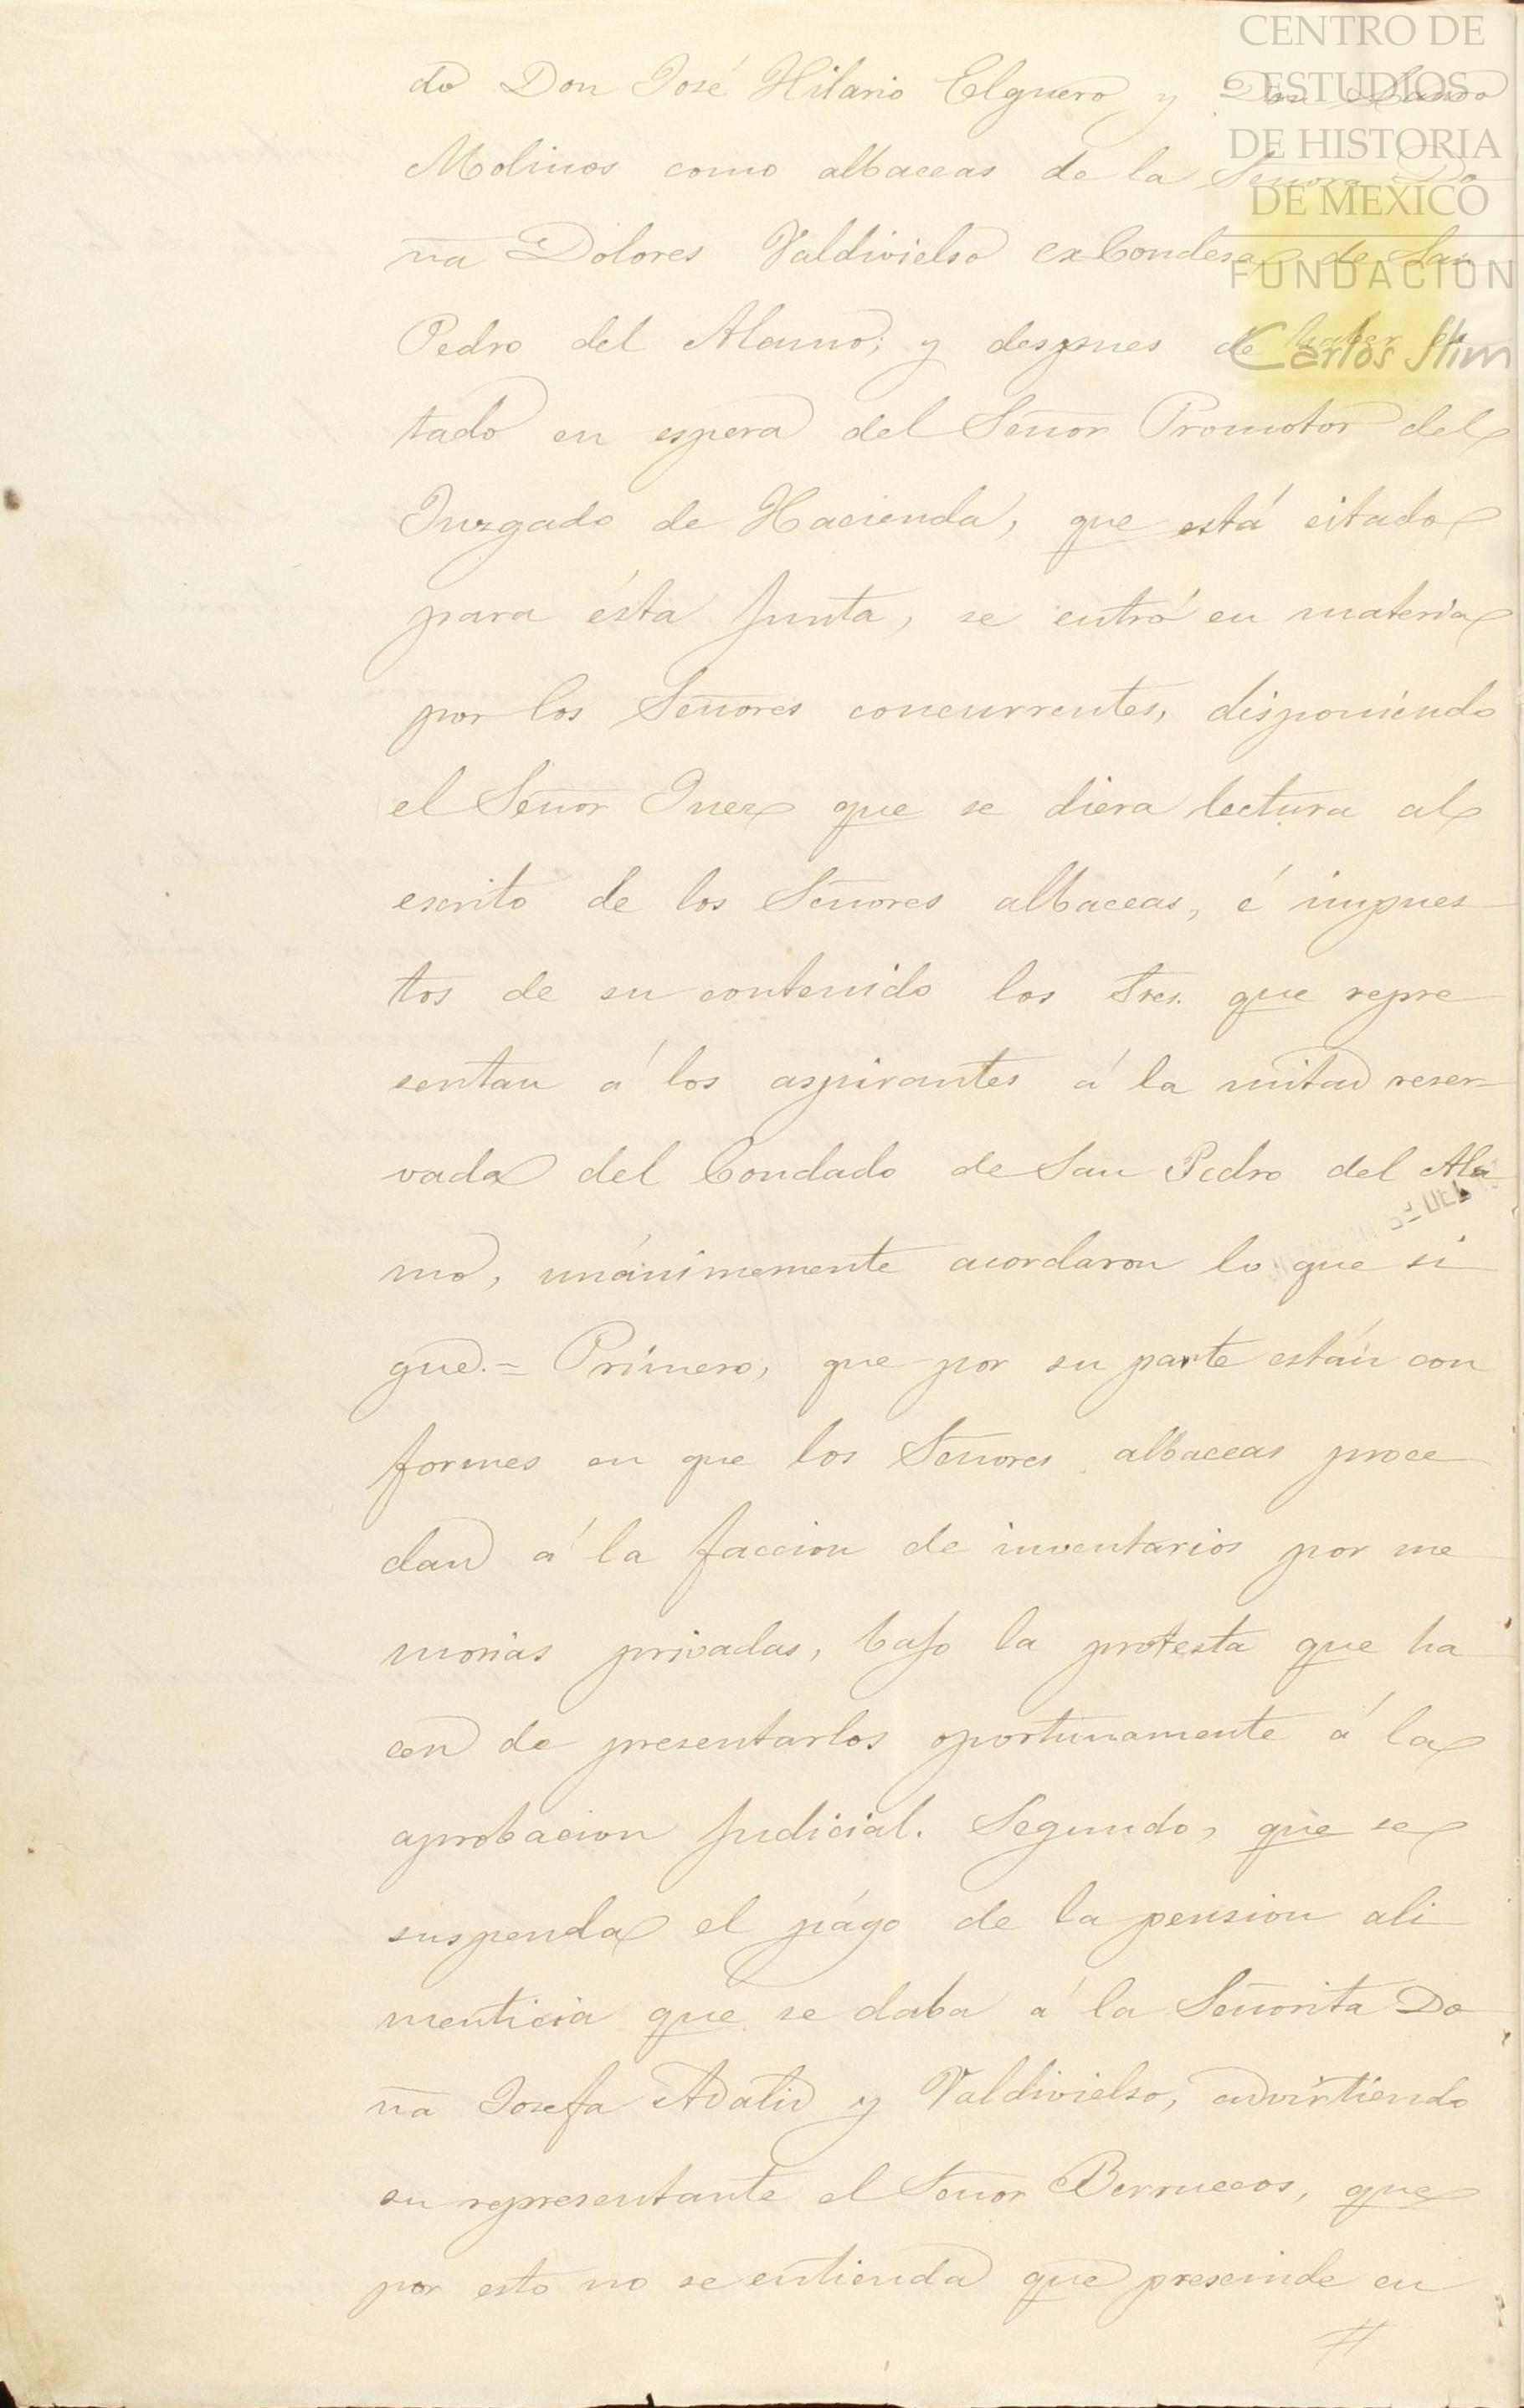 CENTRO DE
ESTUDIOS
DE HISTORIA
DE MEXICO
FUNDACION
Carlos Slim
do Don José Hilario Elguero y Don
Molinos como albaceas de la Señora Do
ña Dolores Valdivielso exCondesa de San
Pedro del Alamo; y despues de haber es
tado en espera del Señor Promotor del
Juzgado de Hacienda, que está citado
para ésta junta, se entró en materia
por los Señores concurrentes, disponiendo
el Señor Juez que se diera lectura al
escrito de los Señores albaceas, é impues
tos de su contenido los Sres. que repre
sentan á los aspirantes á la mitad reser-
vada del Condado de San Pedro del Ala
mo, unánimemente acordaron lo que si
gue.= Primero, que por su parte están con
formes en que los Señores albaceas proce
dan á la faccion de inventarios por me
morias privadas, bajo la protesta que ha
cen de presentarlos oportunamente á la
aprobacion judicial. Segundo, que se
suspenda el págo de la pension ali
menticia que se daba á la Señorita Do
ña Josefa Adalid y Valdivielso, advirtiendo
su representante el Señor Berruecos, que
por esto no se entienda que prescinde en
#